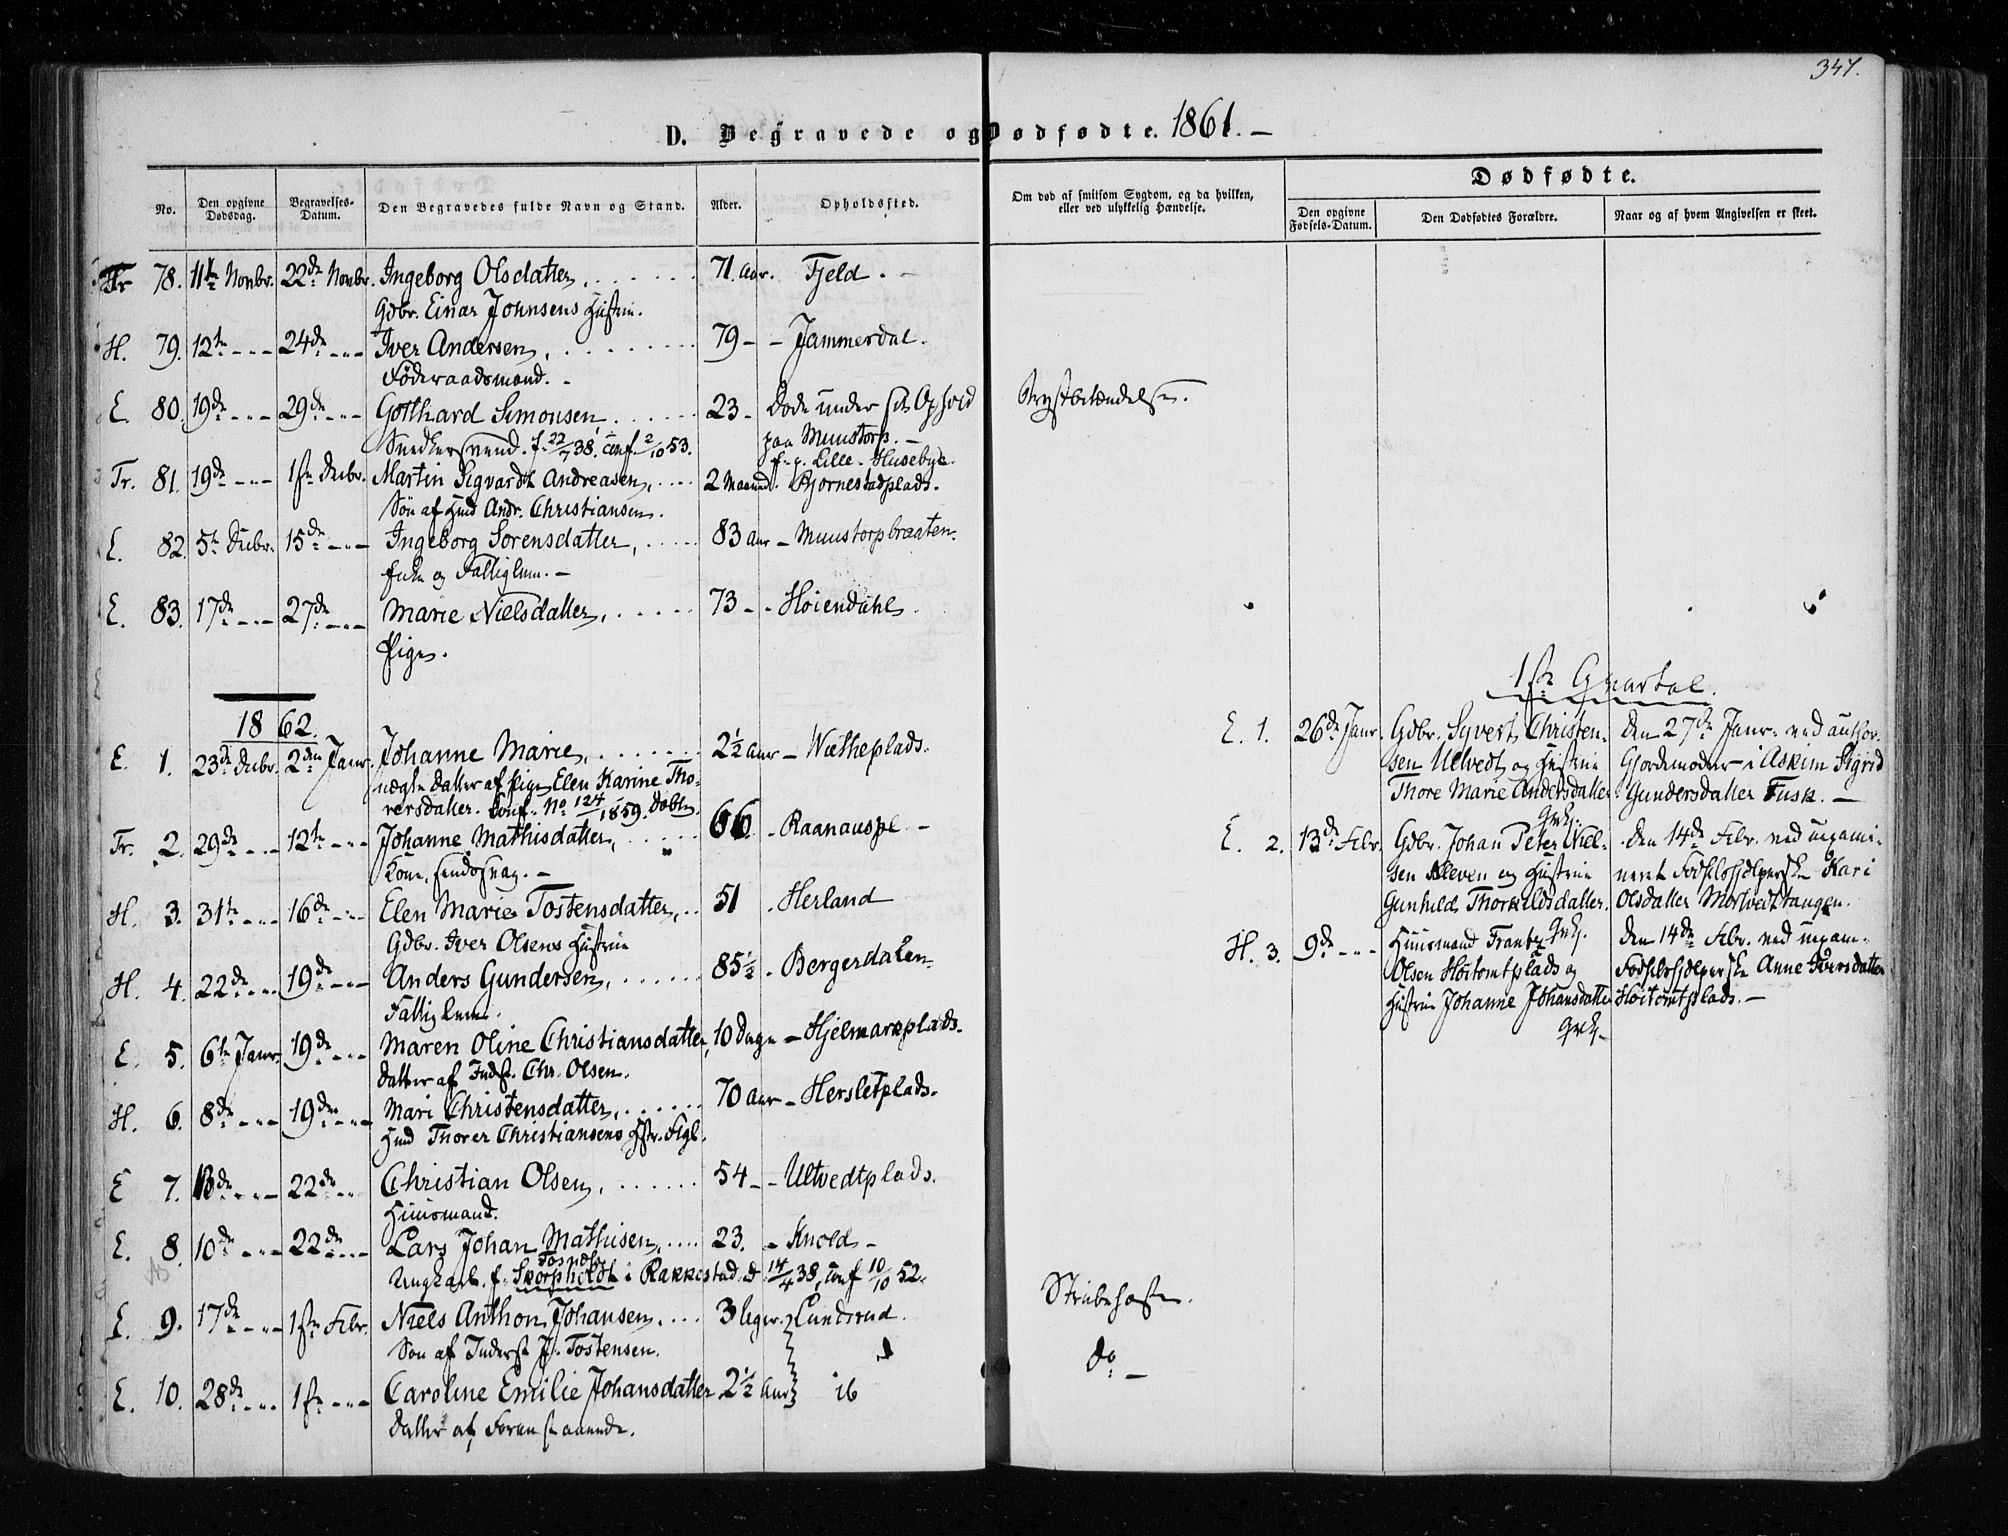 347.
D. Begravede og Dødfødte. 1861. –
Dødfødte.
No. Den opgivne Dødsdag. Begravelses-Datum. Den Begravedes fulde Navn og Stand. Alder. Opholdssted. Om død af smitsom Sygdom, og da hvilken, eller ved ulykkelig Hændelse. Den opgivne Fødsels-Datum. Den Dødfødtes Forældre. Naar og af hvem Angivelsen er skeet.
Tr 78. 11te Novbr. 22de Novbr. Ingeborg Olsdatter, 71 Aar. Fjeld. –
Gdbr. Einar Johnsens Hustru.
H. 79. 12te -"- 24de -"- Iver Andersen, 79 - - Jammerdal.
Föderaadsmand. -
E. 80. 19de -"- 29de -"- Gotthard Simonsen, 23 - Döde under sit Ophold Brystbetændelse.
Snedkersvend. f. 22/7 38. Conf. 2/10 53. paa Muustorp. –
f. p. Lille-Husebye.
Tr. 81. 19de -"- 1ste Decbr. Martin Sigvardt Andreasen, 2 Maaned. Bjornestadplads.
Sön af Hmd Andr. Christiansen.
E. 82. 5te Decbr. 15de -"- Ingeborg Sorensdatter, 83 Aar - Muustorpbraaten.
Enke og Fattiglem. –
E. 83. 17de -"- 27de -"- Marie Nielsdatter, 73 - - Hoiendahl.
Pige.
1862.
E. 1. 23de Decbr. 2den Janr. Johanne Marie, 2½ Aar - Wætheplads.
uægte Datter af Pige Elen Karine Tho-
rersdatter. Conf. No 124/1859. Döbte.
Tr. 2. 29de -"- 12te -"- Johanne Mathisdatter, 66. - Raanauspl –
Kone,
H. 3. 31te -"- 16de -"- Elen Marie Tostensdatter, 51 . Herland
Gdbr. Iver Olsens Hustrue
H. 4. 22de -"- 19de -"- Anders Gundersen, 85½ . Bergerdalen-
Fattiglem.
E. 5. 6te Janr. 19de -"- Maren Oline Christiansdatter, 10 Dage - Hjelmarkplads.
Datter af Inds. Chr. Olsen.
H. 6. 8de -"- 19de -"- Mari Christensdatter, 70 Aar - Hersletplads.
Hmd Thorer Christiansens Hstr. Figl.
E 7. 13de -"- 22de -"- Christian Olsen, 54 - - Ultvedtplads.
Huusmand.
E. 8. 10de -"- 22de -"- Lars Johan Mathisen, 23. - Knold -
Ungkarl. f. Skorpholdt i Rakkestad d 14/4 38, Conf 10/10 52.
E. 9. 17de -"- 1ste Febr. Niels Anthon Johansen, 3 Uger. Lundsrud. Strubehoste.
Sön af Inderst J. Tostensen.
E. 10. 28de -"- 1ste -"- Caroline Emilie Johansdatter 2½ Aar ib do –
Datter af Foranstaaende.
1ste Qvartal.
E. 1. 26de Janr. Gdbr. Syvert Christen-
sen Ultvedt og Hustrue
Thore Marie Andersdatter
Den 27de Janr. ved author.
Gjordemoder i Askim Sigrid
Gundersdatter Fusk. –
E. 2. 13de Febr. Gdbr. Johan Peter Niel-
sen Kleven og Hustrue
Gunhild Thorkildsdatter.
Den 14de Febr. ved uexami-
neret Födselshjelperske Kari
Olsdatter Mortvedttangen.
H. 3. 9de -"- Huusmand Frantz
Olsen Hoitomtplads og
Hustrue Johanne Johansdatter
Den 14de Febr. ved uexam.
Födselshjelperske Anne Iversdatter
Hoitomtplads. –